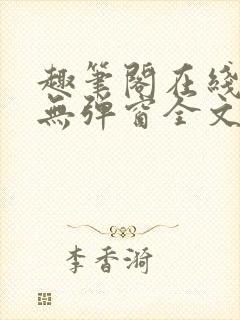 趣筆閣在綫
無彈窗全文
李香漪